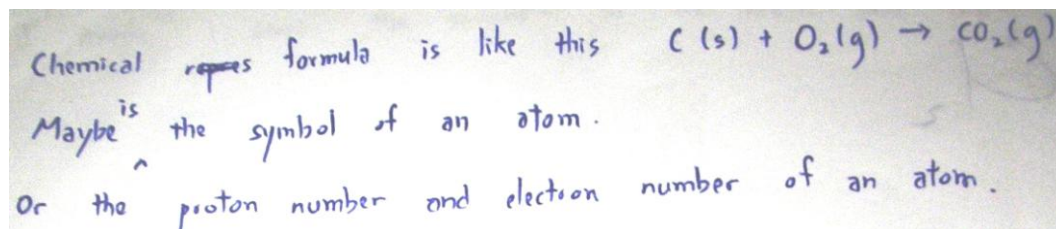 Chemical formula is like this C (s) + O₂(g) → CO₂(g)
Maybe is the symbol of an atom.
Or the proton number and electron number of an atom.